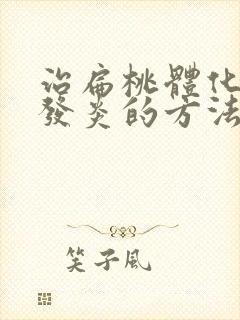 治扁桃體化
發炎的方法
笑子風